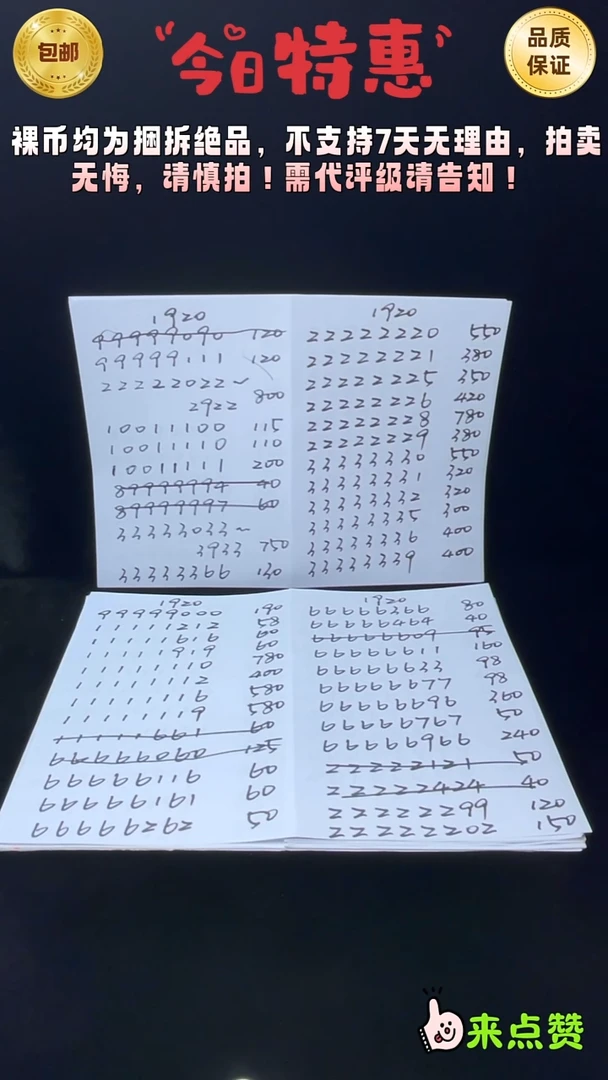 包邮
今日特惠
品质
保证
裸币均为捆拆绝品，不支持7天无理由，拍卖
无悔，请慎拍！需代评级请告知！
1920
99999090 120
99999111 120
22222022~
2922 800
10011100 115
10011110 110
10011111 200
89999994 40
89999997 60
33333033~
3933 750
33333366 130
1920
22222220 550
22222221 380
22222225 350
22222226 420
22222228 780
22222229 380
33333330 550
33333331 320
33333332 320
33333335 300
33333336 400
33333339 400
1920
99999000 190
11111212 58
11111616 60
11111919 60
11111110 780
11111112 400
11111116 580
11111119 580
11111661 60
66666060 125
66666116 60
66666161 60
66666262 50
1920
66666366 80
66666464 40
66666609 95
66666611 160
66666633 98
66666677 98
66666696 360
66666767 50
66666966 240
22222121 50
22222424 40
22222299 120
22222202 150
来点赞